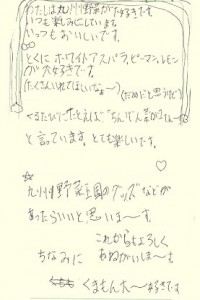 わたしは九州野菜が大好きです
いつも楽しみにしている
いつもおいしいです。
とくにホワイトアスパラ、ピーマン、レモン
が大好きです。
(たくさんいれてほしいなぁ〜)
(だめだと思うけど)
くるたびにたとえば、"ちんげん菜が
と言っています。とても楽しいです。
☆
九州野菜王国のグッズなどが
あったらいいと思いま〜す。
これからもよろしく
おねがいしま〜す
ちなみに
くまもんだ〜い好きです